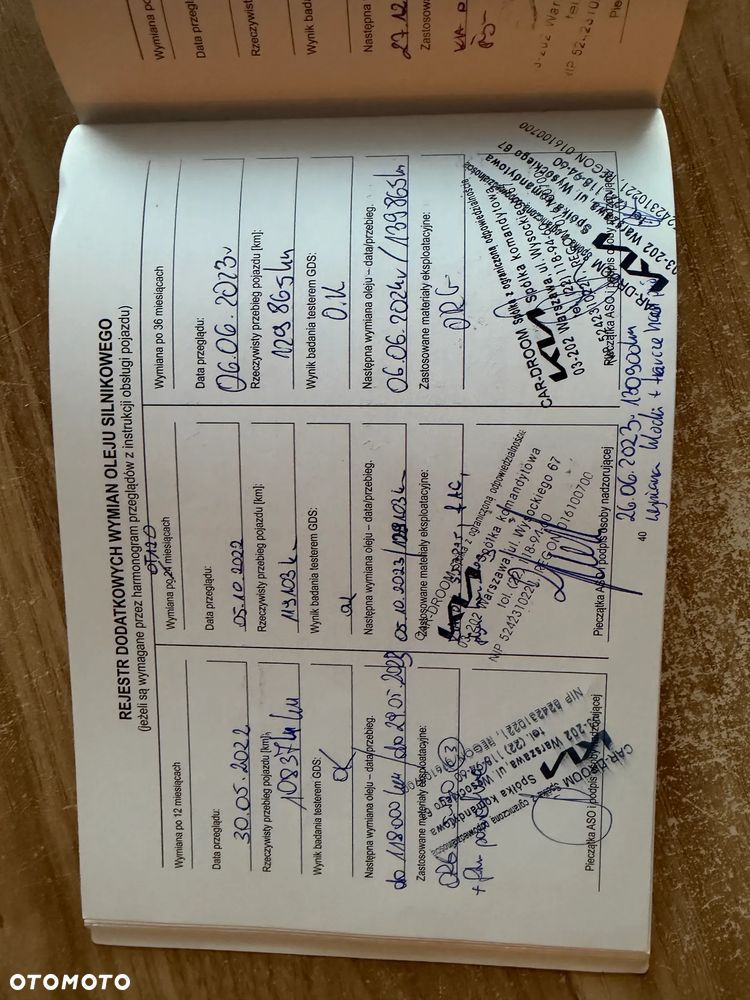 REJESTR DODATKOWYCH WYMIAN OLEJU SILNIKOWEGO
(jeżeli są wymagane przez harmonogram przeglądów z instrukcji obsługi pojazdu)
Wymiana po 12 miesiącach
Data przeglądu:
30.05.2022
Rzeczywisty przebieg pojazdu [km]:
km
Wynik badania testerem GDS:
OK
Następna wymiana oleju – data/przebieg.
do 118000 km do 29.05.2023
Zastosowane materiały eksploatacyjne:
ORG
CAR-DROOM
Spółka komandytowa
03-202 Warszawa, ul. Wysockiego
NIP 5242310221, REGON
Pieczątka ASO i podpis osoby nadzorującej
Wymiana po 24 miesiącach
Data przeglądu:
05.10.2022
Rzeczywisty przebieg pojazdu [km]:
119103 k
Wynik badania testerem GDS:
ok
Następna wymiana oleju – data/przebieg.
05.10.2023
Zastosowane materiały eksploatacyjne:
CAR-DROOM Spółka z ograniczoną odpowiedzialnością
Spółka komandytowa
03-202 Warszawa, ul. Wysockiego 67
tel. (22) 118-94-60
NIP 5242310221, REGON 016100700
Pieczątka ASO i podpis osoby nadzorującej
Wymiana po 36 miesiącach
Data przeglądu:
06.06.2023r
Rzeczywisty przebieg pojazdu [km]:
129865km
Wynik badania testerem GDS:
O.K
Następna wymiana oleju – data/przebieg.
06.06.2024r/139865km
Zastosowane materiały eksploatacyjne:
ORG
CAR-DROOM Spółka z ograniczoną odpowiedzialnością
KIA Spółka Komandytowa
03-202 Warszawa ul. Wysockiego 67
tel. (22) 118-94-60
Pieczątka ASO i podpis osoby nadzorującej
CAR-DROOM
KIA Spółka komandytowa
03-202 Warszawa, ul. Wysockiego 67
tel. (22) 118-94-60
5242310221, REGON 016100700
40
26.06.2023r.
wymiana klocki + tarcze
Wymiana po
Data przeglądu
Rzeczywisty
Wynik bada
Następna
27.12
Zastosowane
KIA
3-202 War
NIP 5242310
OTOMOTO